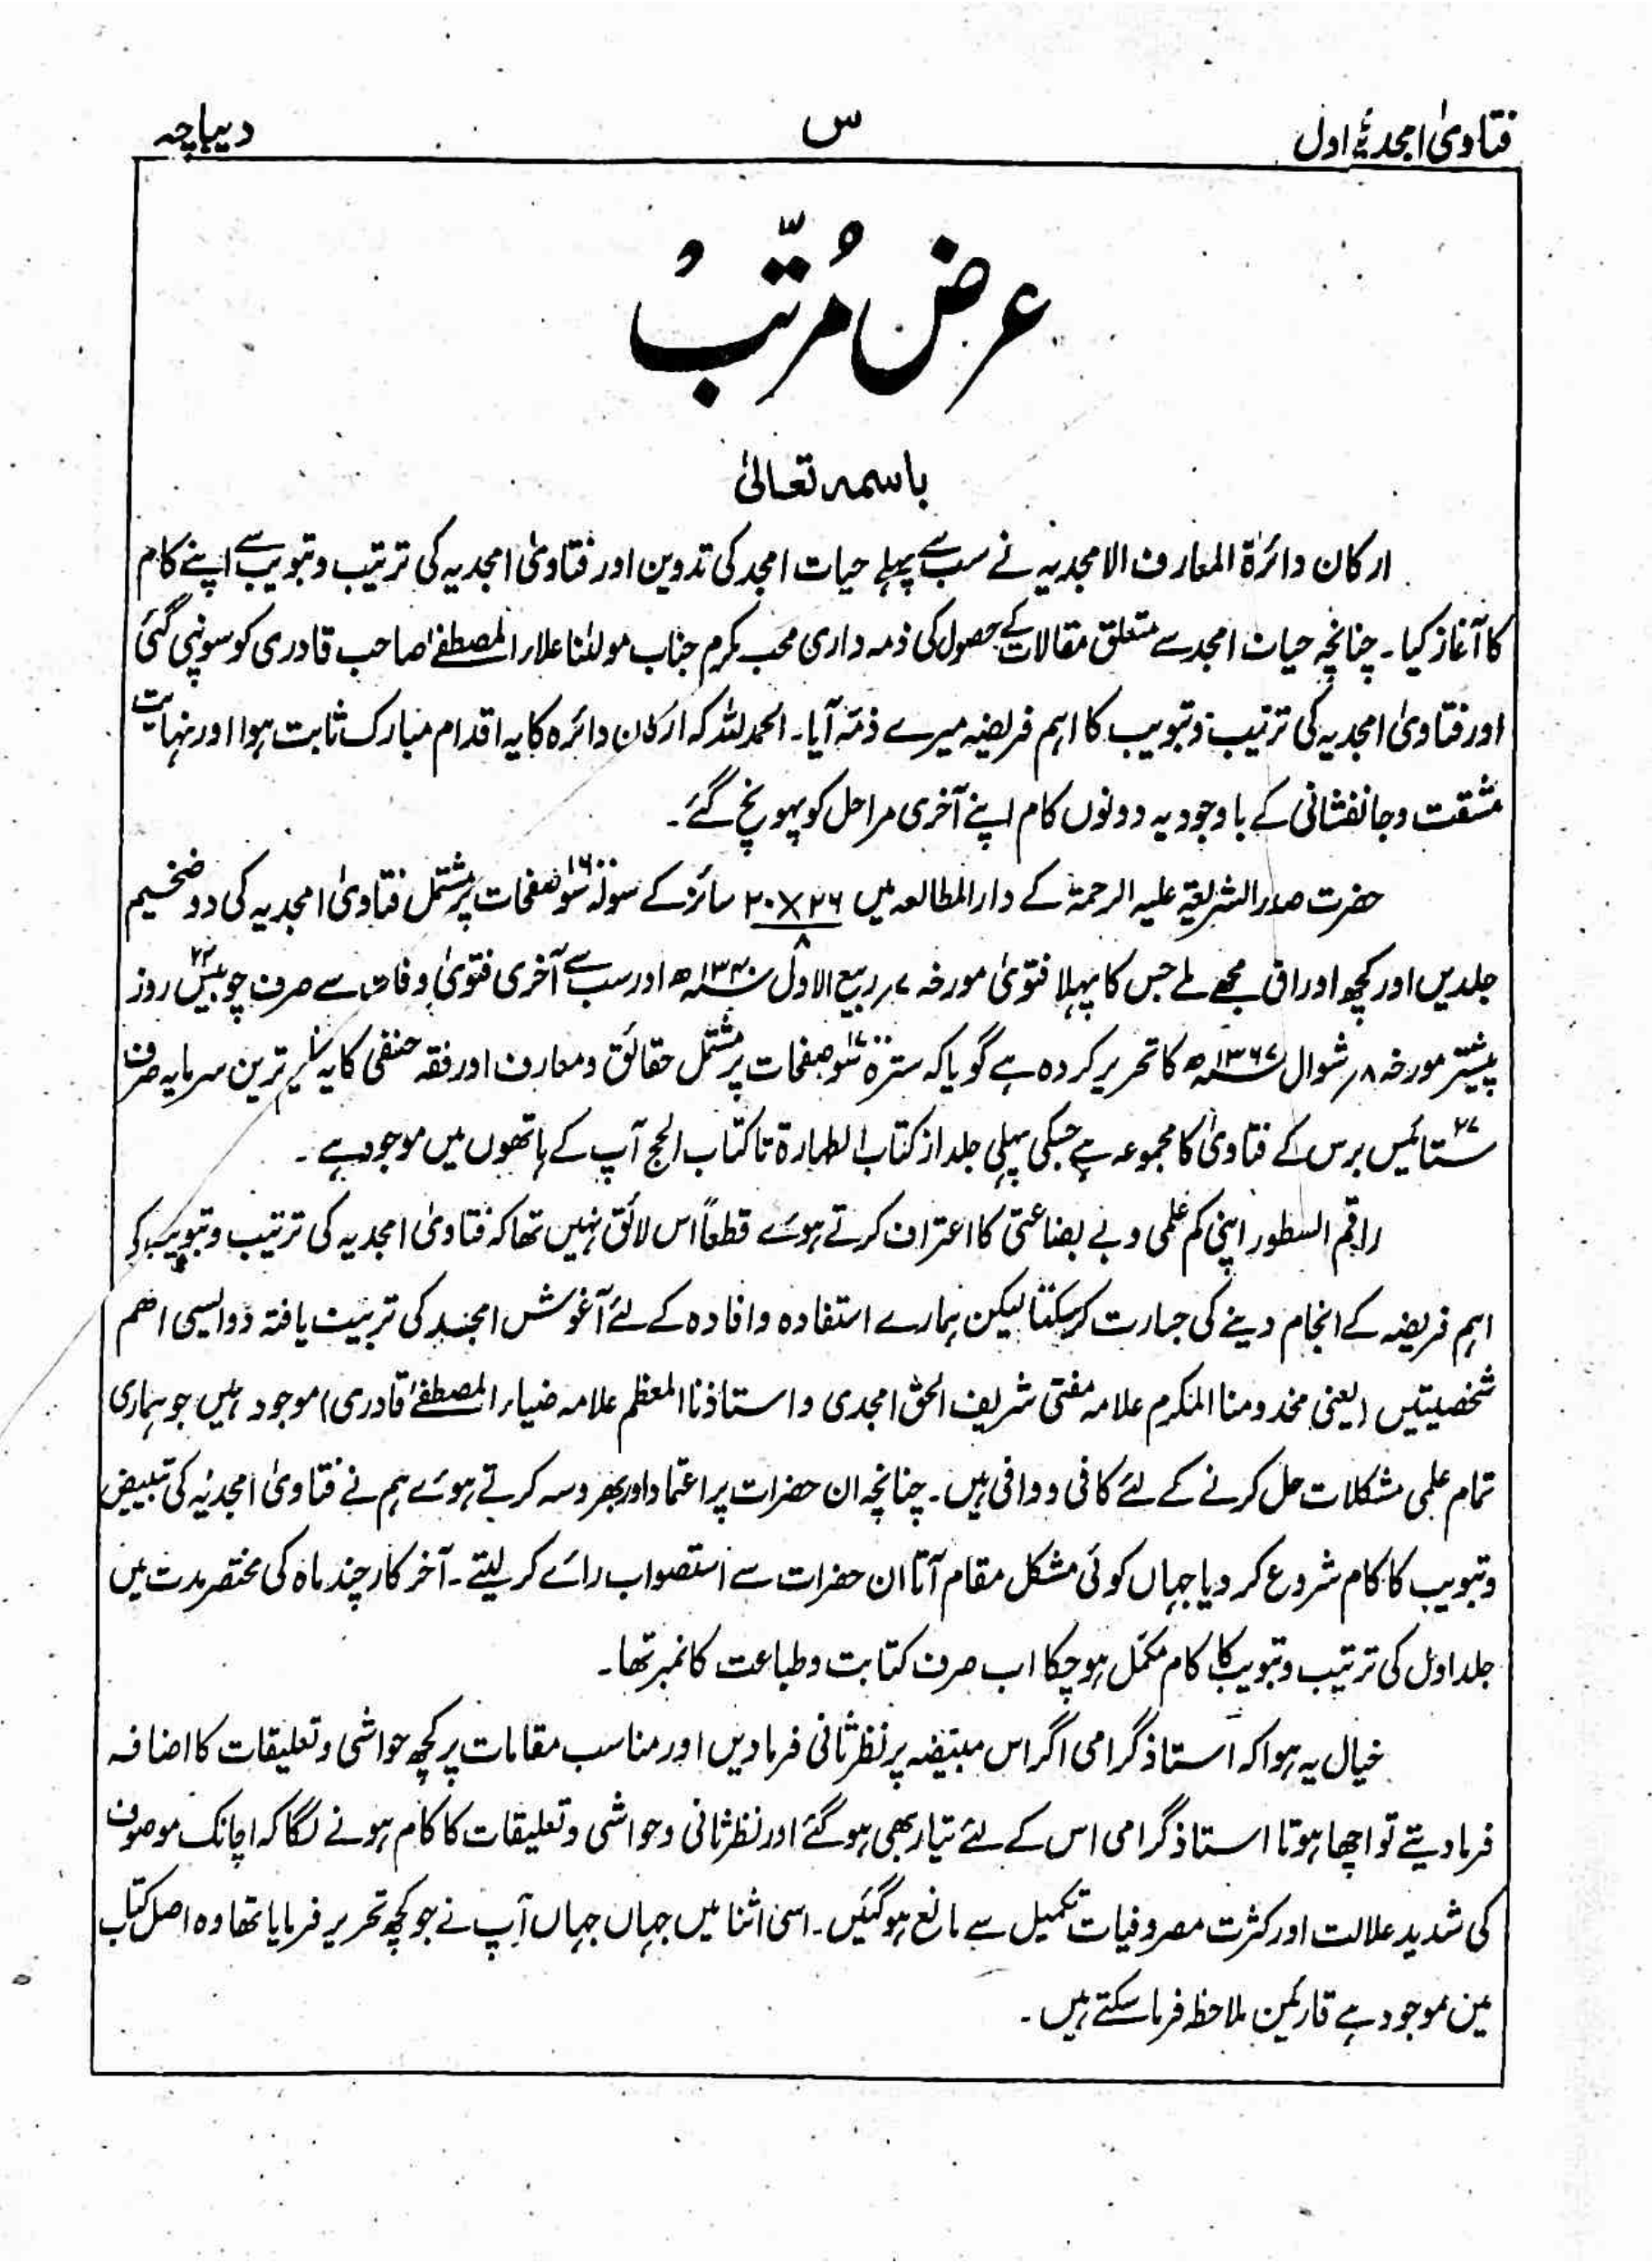 فتاویٰ امجدیہ اول
س
دیباچہ
عرض مُرتّبْ
باسمہ تعالیٰ
ارکان دائرۃ المعارف الامجدیہ نے سب سے پہلے حیات امجد کی تدوین اور فتاویٰ امجدیہ کی ترتیب وتبویب سے اپنے کام
کا آغاز کیا۔ چنانچہ حیات امجد سے متعلق مقالات کے حصول کی ذمہ داری محب مکرم جناب مولٰنا علاء المصطفےٰ صاحب قادری کو سونپی گئی
اور فتاویٰ امجدیہ کی ترتیب وتبویب کا اہم فریضہ میرے ذمّہ آیا۔ الحمد للہ کہ ارکان دائرہ کا یہ اقدام مبارک ثابت ہوا اور نہایت
مشقت وجانفشانی کے باوجود یہ دونوں کام اپنے آخری مراحل کو پہونچ گئے۔
حضرت صدر الشریعۃ علیہ الرحمۃ کے دار المطالعہ میں ۲۰×۲۶/۸ سائز کے سولہ سو ۱۶۰۰ صفحات پر مشتمل فتاویٰ امجدیہ کی دو ضخیم
جلدیں اور کچھ اوراق مجھے ملے جس کا پہلا فتویٰ مورخہ ۷؍ ربیع الاول ۱۳۴۰ھ اور سب سے آخری فتویٰ وفات سے صرف چوبیس ۲۴ روز
پیشتر مورخہ ۸؍ شوال ۱۳۶۷ھ کا تحریر کردہ ہے گویا کہ سترہ سو ۱۷۰۰ صفحات پر مشتمل حقائق ومعارف اور فقہ حنفی کا یہ ترین سرمایہ صرف
ستائیس ۲۷ برس کے فتاویٰ کا مجموعہ ہے جسکی پہلی جلد از کتاب الطہارۃ تا کتاب الحج آپ کے ہاتھوں میں موجود ہے۔
راقم السطور اپنی کم علمی و بے بضاعتی کا اعتراف کرتے ہوئے قطعاً اس لائق نہیں تھا کہ فتاویٰ امجدیہ کی ترتیب وتبویب کے
اہم فریضہ کے انجام دینے کی جسارت کرسکتا لیکن ہمارے استفادہ وافادہ کے لئے آغوش امجد کی تربیت یافتہ دو ایسی اھم
شخصیتیں (یعنی مخدومنا المکرم علامہ مفتی شریف الحق امجدی و استاذنا المعظم علامہ ضیاء المصطفےٰ قادری) موجود ہیں جو ہماری
تمام علمی مشکلات حل کرنے کے لئے کافی ووافی ہیں۔ چنانچہ ان حضرات پر اعتماد اور بھروسہ کرتے ہوئے ہم نے فتاویٰ امجدیہ کی تبییض
وتبویب کا کام شروع کر دیا جہاں کوئی مشکل مقام آتا ان حضرات سے استصواب رائے کر لیتے۔ آخر کار چند ماہ کی مختصر مدت میں
جلد اول کی ترتیب وتبویب کا کام مکمل ہو چکا اب صرف کتابت وطباعت کا نمبر تھا۔
خیال یہ ہوا کہ استاذ گرامی اگر اس مبیضہ پر نظر ثانی فرمادیں اور مناسب مقامات پر کچھ حواشی وتعلیقات کا اضافہ
فرمادیتے تو اچھا ہوتا استاذ گرامی اس کے لئے تیار بھی ہوگئے اور نظر ثانی وحواشی وتعلیقات کا کام ہونے لگا کہ اچانک موصوف
کی شدید علالت اور کثرت مصروفیات تکمیل سے مانع ہوگئیں۔ اسی اثنا میں جہاں جہاں آپ نے جو کچھ تحریر فرمایا تھا وہ اصل کتاب
میں موجود ہے قارئین ملاحظہ فرما سکتے ہیں۔